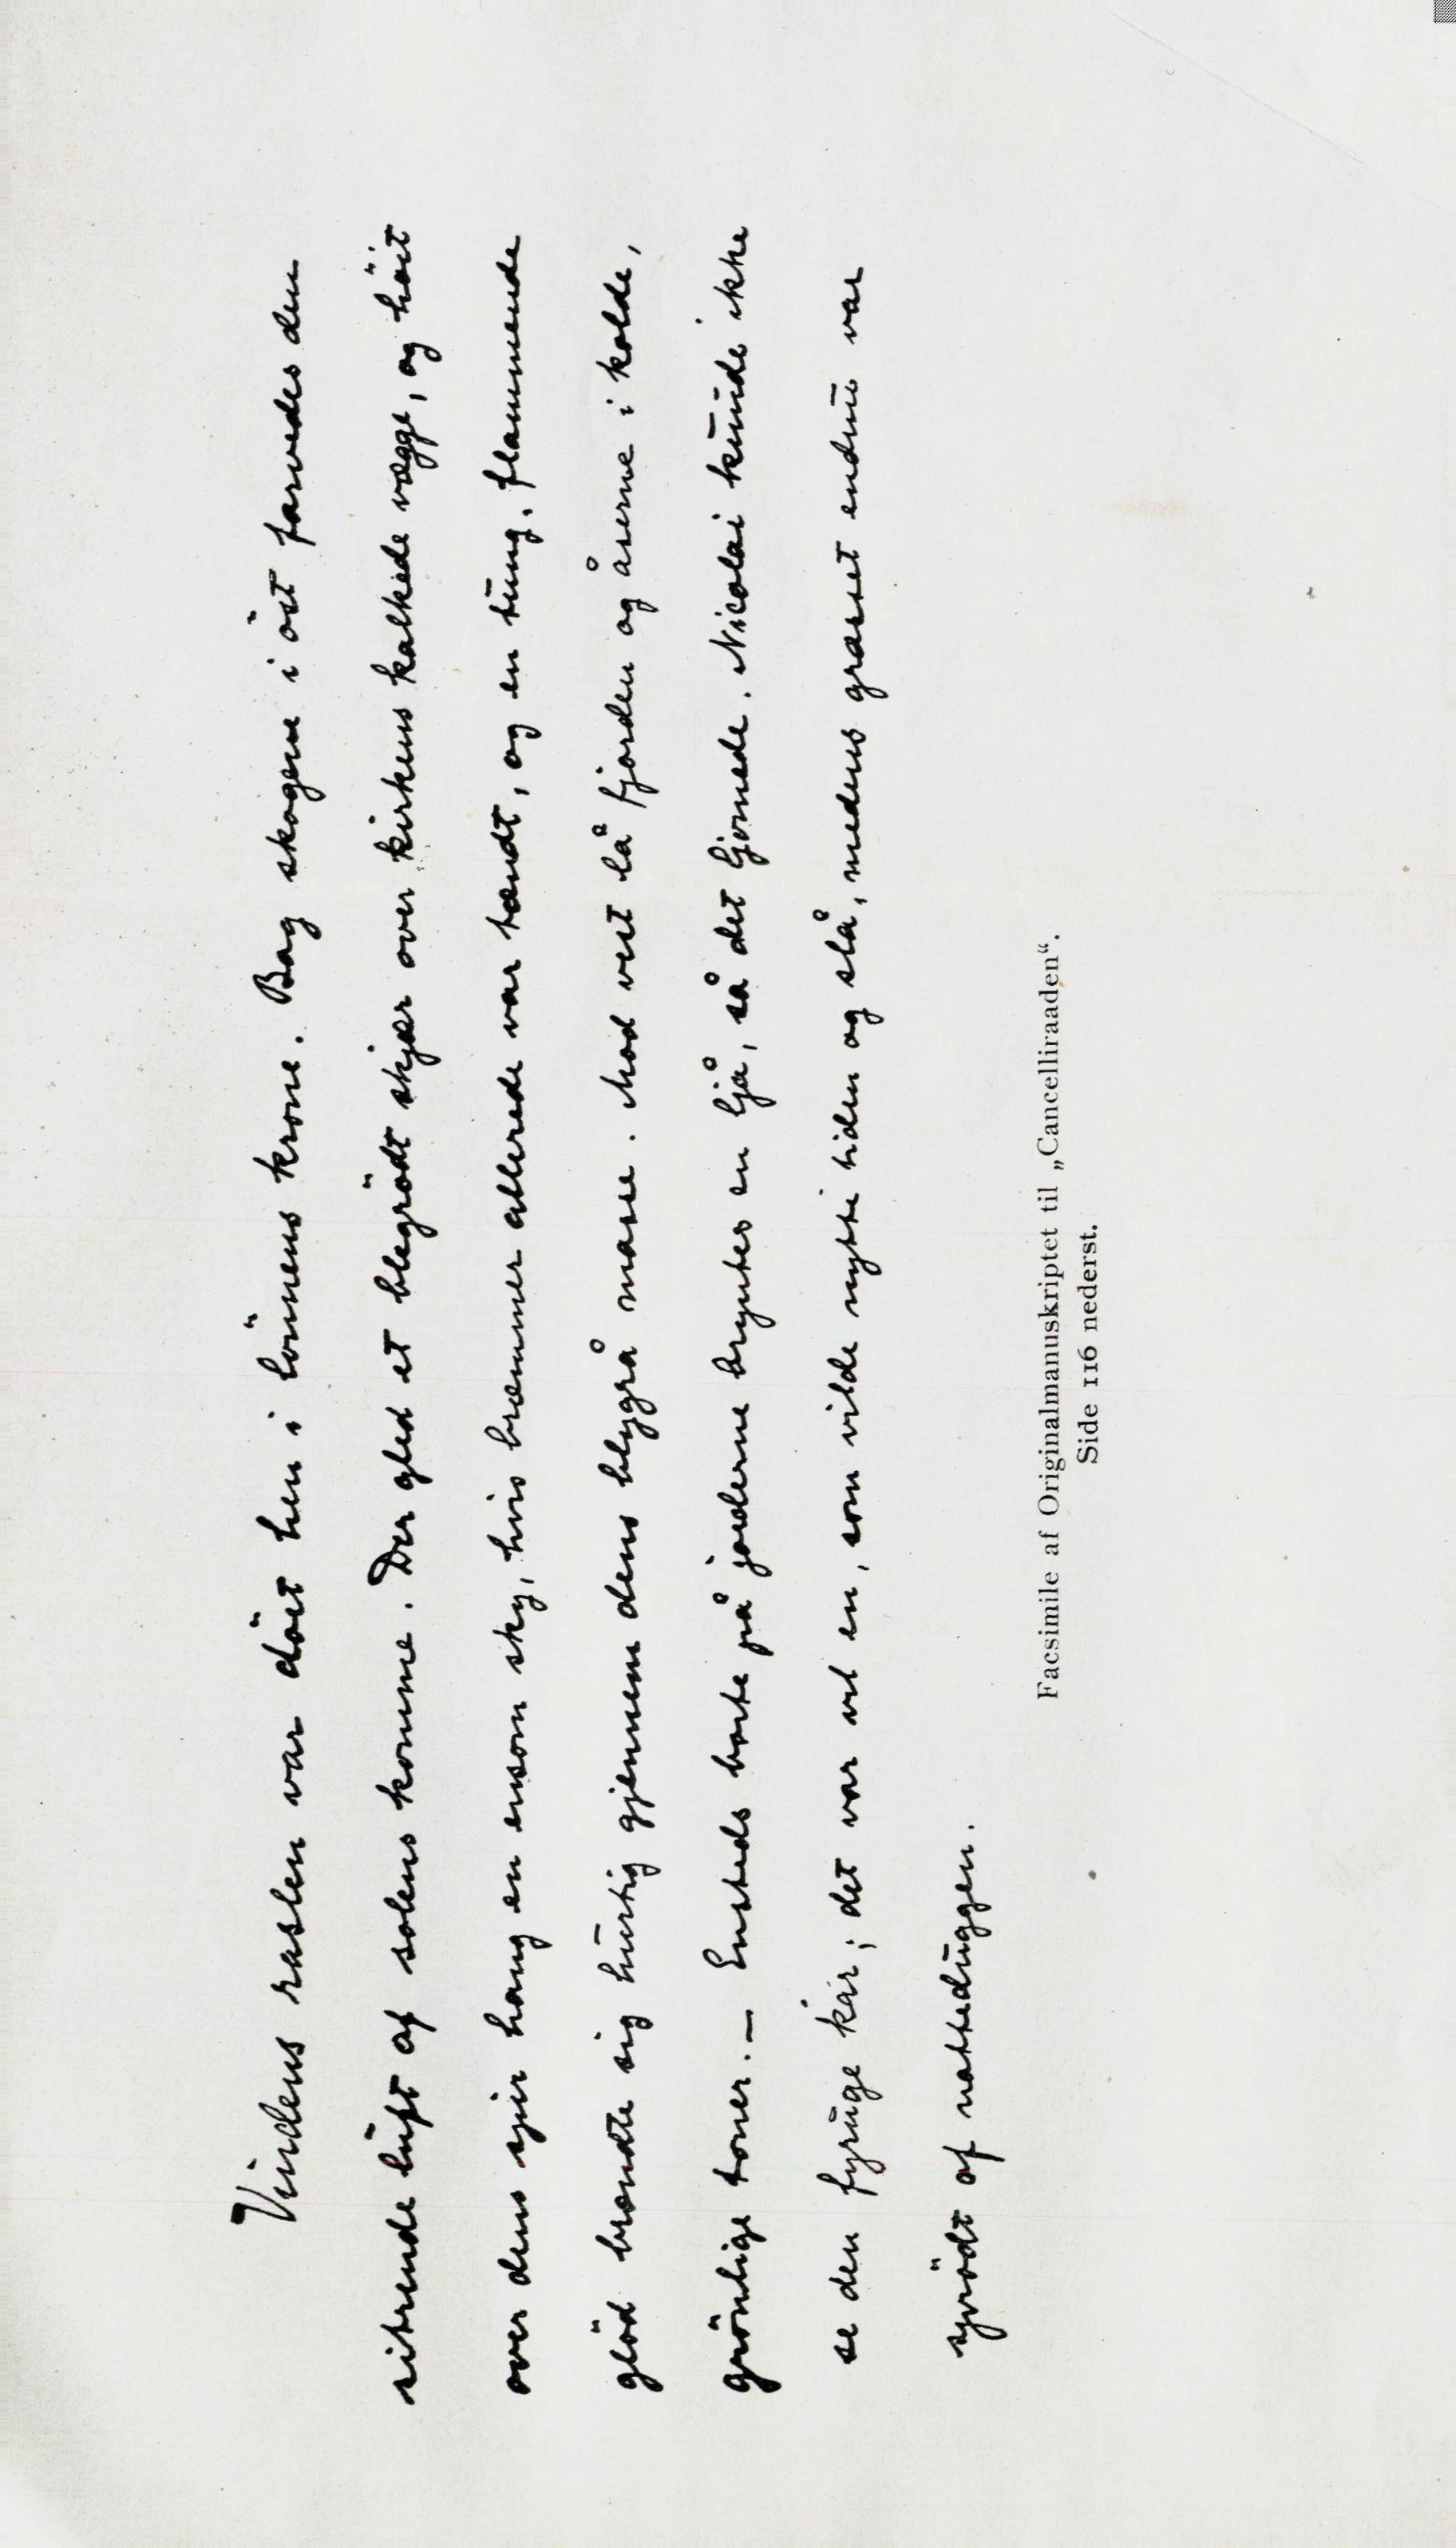 Vindens raslen var döet hen i lönnens krone. Bag skogene i öst farvedes den
sitrende luft af solens komme. Der gled et blegrödt skjær over kirkens kalkede vægge, og höit
over dens spir hang en ensom sky, hvis bræmmer allerede var tændt, og en tung, flammende
glöd brændte sig hurtig gjennem dens blygrå masse. Mod vest lå fjorden og åserne i kolde,
grönlige toner. — Ensteds borte på jorderne bryntes en ljå, så det ljomede. Nicolai kunde ikke
se den fyruge kar; det var vel en, som vilde nytte tiden og slå, medens græsset endnu var
sprödt af natteduggen.
Facsimile af Originalmanuskriptet til „Cancelliraaden“.
Side 116 nederst.